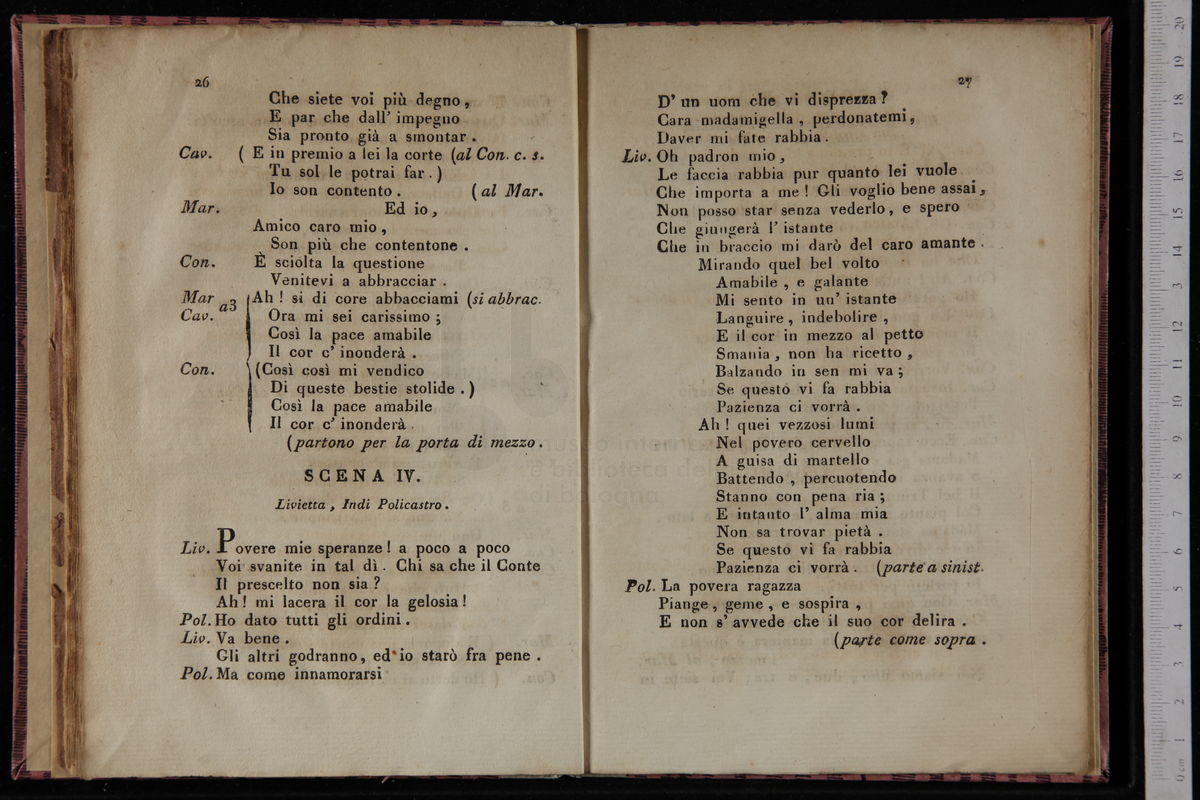 26
Che siete voi più degno,
E par che dall' impegno
Sia pronto già a smontar.
Cav. ( E in premio a lei la corte (al Con. c. s.
Tu sol le potrai far.)
Io son contento. (al Mar.
Mar. Ed io,
Amico caro mio,
Son più che contentone.
Con. È sciolta la questione
Venitevi a abbracciar.
Mar a3 Ah! si di core abbacciami (si abbrac.
Cav. Ora mi sei carissimo;
Così la pace amabile
Il cor c' inonderà.
Con. (Così così mi vendico
Di queste bestie stolide.)
Così la pace amabile
Il cor c' inonderà.
(partono per la porta di mezzo.
SCENA IV.
Livietta, Indi Policastro.
Liv. Povere mie speranze! a poco a poco
Voi svanite in tal dì. Chi sa che il Conte
Il prescelto non sia?
Ah! mi lacera il cor la gelosia!
Pol. Ho dato tutti gli ordini.
Liv. Va bene.
Gli altri godranno, ed io starò fra pene.
Pol. Ma come innamorarsi
27
D' un uom che vi disprezza?
Cara madamigella, perdonatemi,
Daver mi fate rabbia.
Liv. Oh padron mio,
Le faccia rabbia pur quanto lei vuole
Che importa a me! Gli voglio bene assai,
Non posso star senza vederlo, e spero
Che giungerà l' istante
Che in braccio mi darò del caro amante.
Mirando quel bel volto
Amabile, e galante
Mi sento in un' istante
Languire, indebolire,
E il cor in mezzo al petto
Smania, non ha ricetto,
Balzando in sen mi va;
Se questo vi fa rabbia
Pazienza ci vorrà.
Ah! quei vezzosi lumi
Nel povero cervello
A guisa di martello
Battendo, percuotendo
Stanno con pena ria;
E intanto l' alma mia
Non sa trovar pietà.
Se questo vi fa rabbia
Pazienza ci vorrà. (parte a sinist.
Pol. La povera ragazza
Piange, geme, e sospira,
E non s' avvede che il suo cor delira.
(parte come sopra.